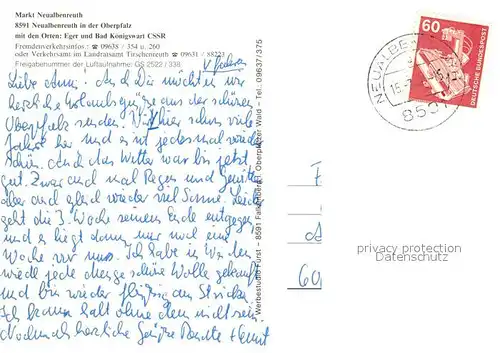 Markt Neualbenreuth
8591 Neualbenreuth in der Oberpfalz
mit den Orten: Eger und Bad Königswart CSSR
Fremdenverkehrsinfos.: ☎ 09638 / 354 u. 260
oder Verkehrsamt im Landratsamt Tirschenreuth ☎ 09631 / 88223
Freigabenummer der Luftaufnahme: GS 2522 / 338
Liebe Anni! Auch Dir möchten wir
herzliche Urlaubsgrüße aus der schönen
Oberpfalz senden. Wir hier schon viele
Jahre her und es ist jedesmal wieder
schön. Auch das Wetter war bis jetzt
gut. Zwar auch mal Regen und Gewitter
aber auch gleich wieder viel Sonne. Leider
geht die 3. Woche seinem Ende entgegen
und es liegt dann nur noch eine
Woche vor uns. Ich habe in
wieder jede Menge schöne Wolle gekauft
und bin wieder fleißig am Stricken.
Ich kann halt ohne dem nicht sein.
Nochmals herzliche Grüße
Werbestudio Fürst – 8591 Falkenberg / Oberpfälzer Wald – Tel.: 09637/375
NEUALBE
15.7
8591
60
DEUTSCHE BUNDESPOST
privacy protection
Datenschutz